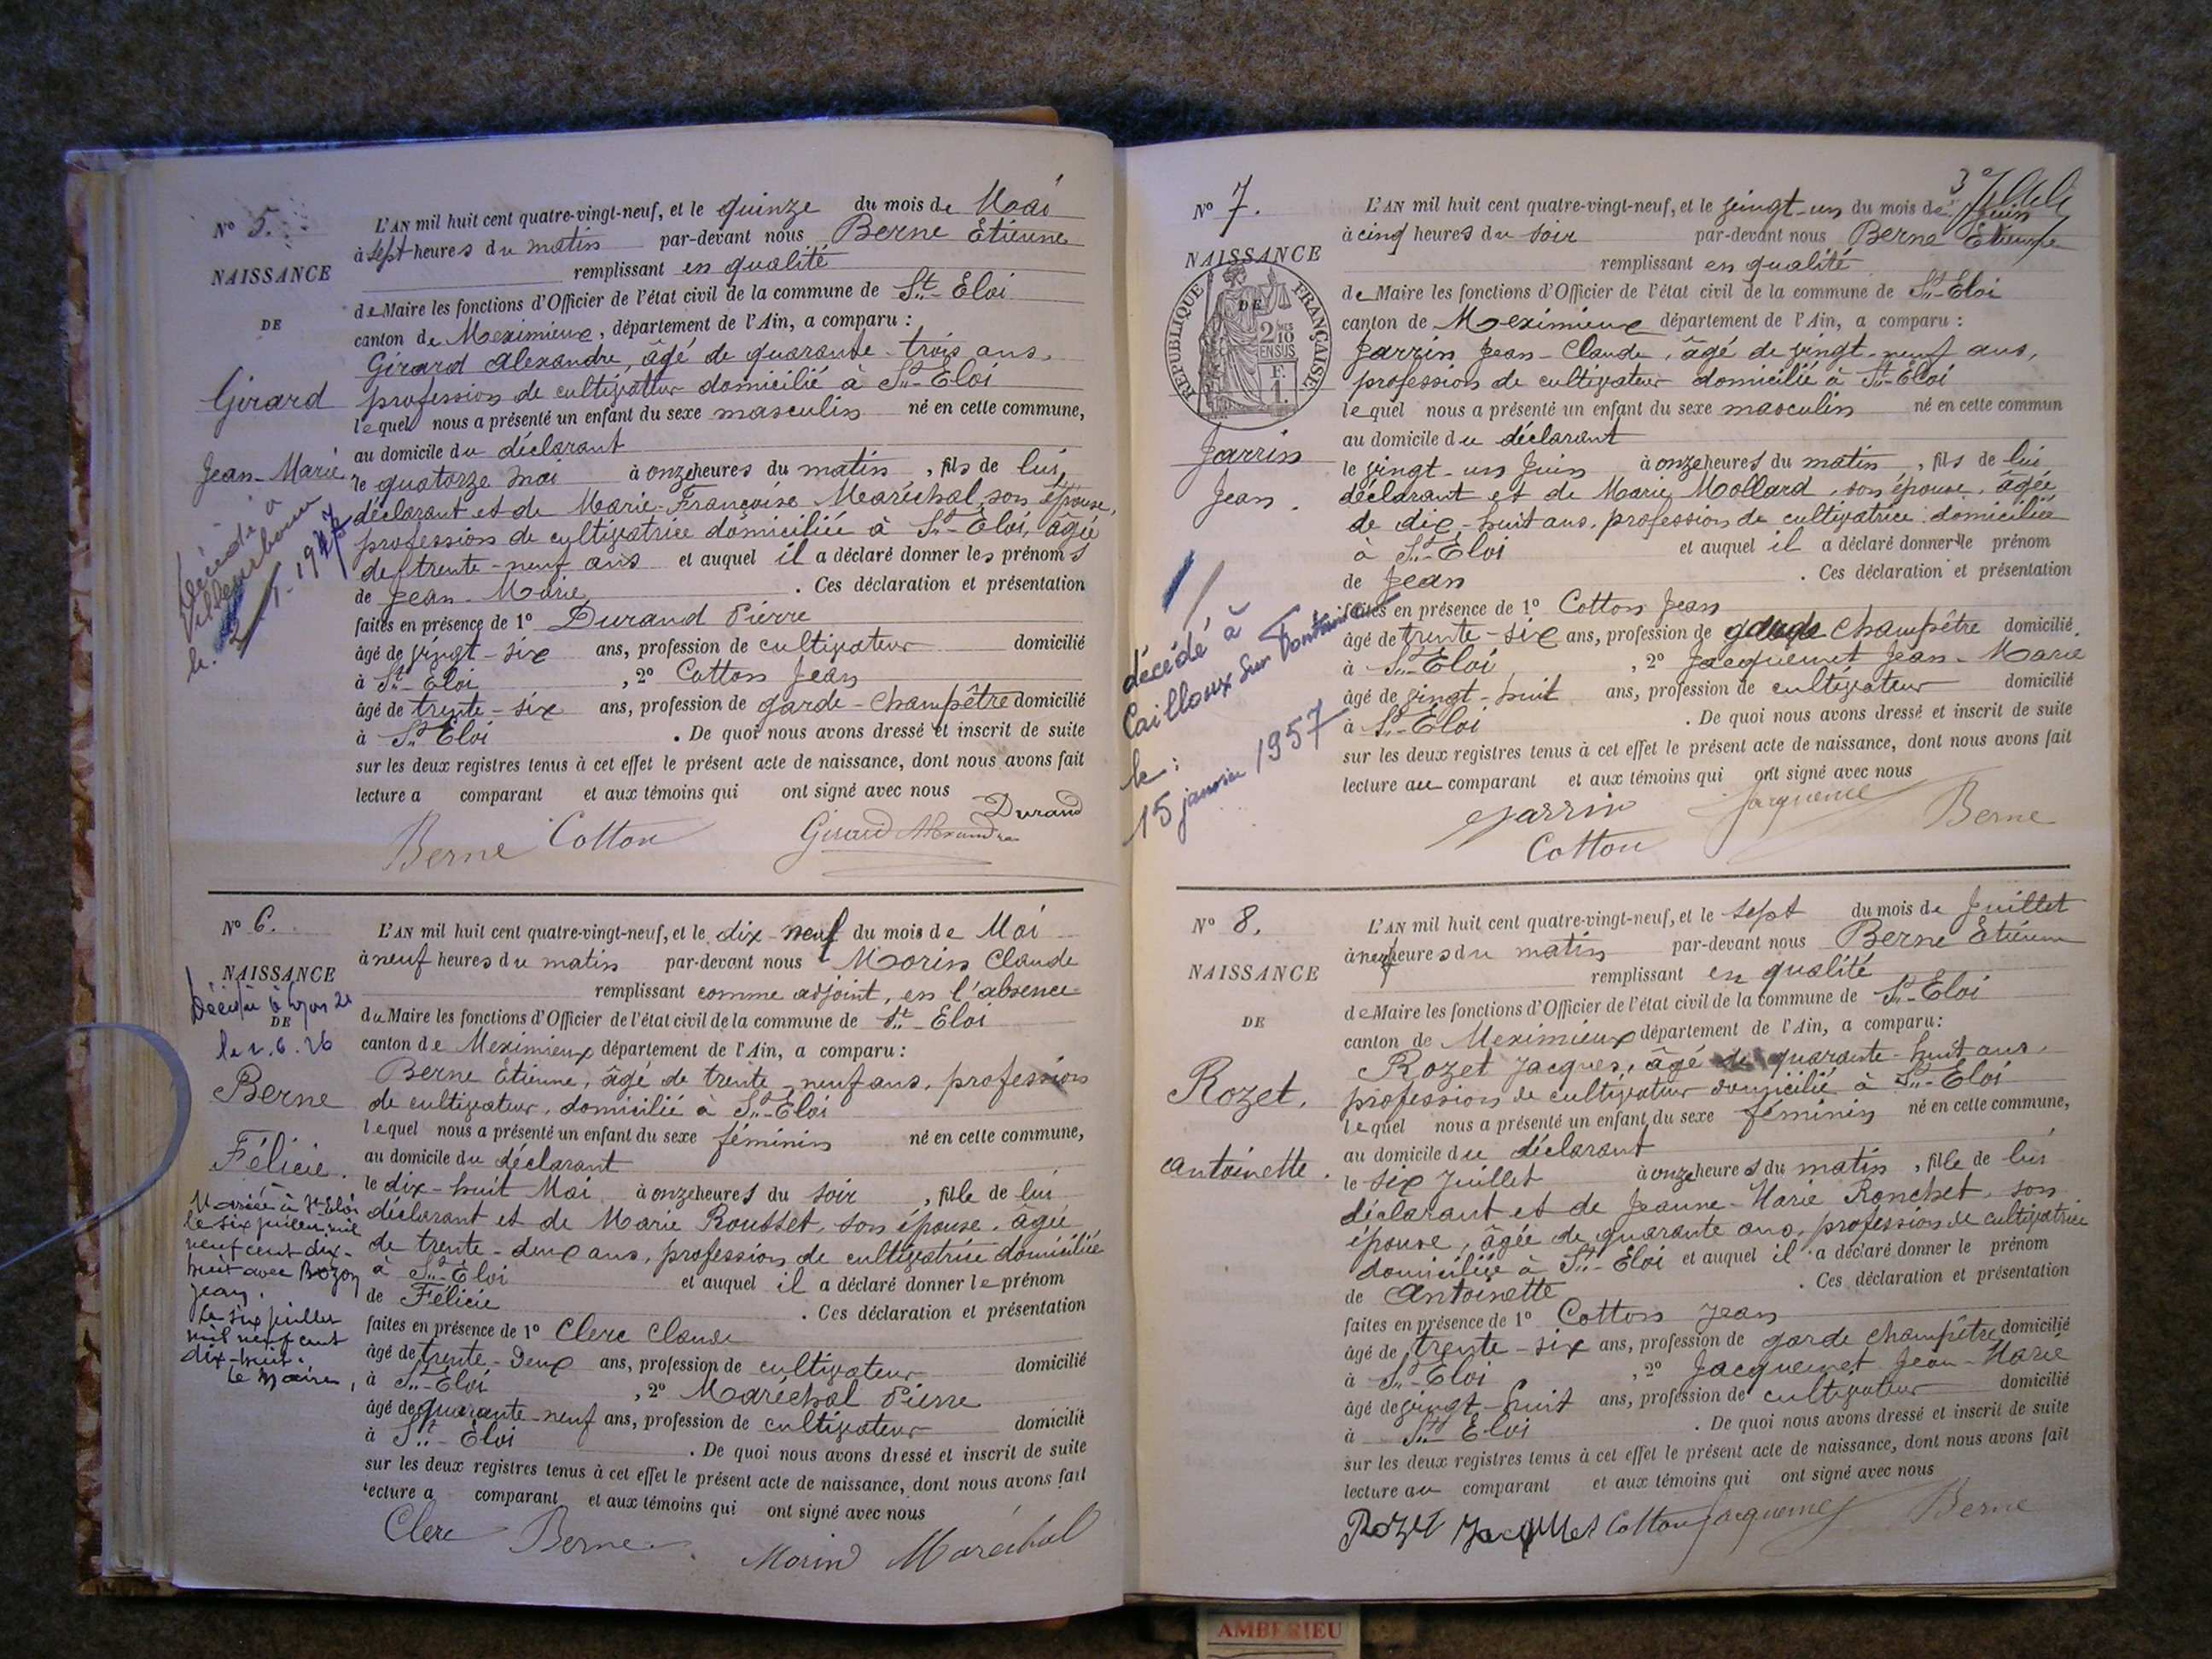 N° 5.
NAISSANCE
DE
Girard
Jean-Marie
décédé à
Villeurbanne
le
L'AN mil huit cent quatre-vingt-neuf, et le quinze du mois de Mai
à sept heures du matin par-devant nous Berne Etienne
remplissant en qualité
de Maire les fonctions d'Officier de l'état civil de la commune de St-Eloi
canton de Meximieux, département de l'Ain, a comparu :
Girard Alexandre, âgé de quarante-trois ans,
profession de cultivateur domicilié à St-Eloi
lequel nous a présenté un enfant du sexe masculin né en cette commune,
au domicile du déclarant
le quatorze mai à onze heures du matin, fils de lui,
déclarant et de Marie-Françoise Maréchal, son épouse,
profession de cultivatrice domiciliée à St-Eloi, âgée
de trente-neuf ans et auquel il a déclaré donner les prénoms
de Jean-Marie. Ces déclaration et présentation
faites en présence de 1° Durand Pierre
âgé de vingt-six ans, profession de cultivateur domicilié
à St-Eloi, 2° Cotton Jean
âgé de trente-six ans, profession de garde-champêtre domicilié
à St-Eloi. De quoi nous avons dressé et inscrit de suite
sur les deux registres tenus à cet effet le présent acte de naissance, dont nous avons fait
lecture a comparant et aux témoins qui ont signé avec nous
Durand
Berne Cotton Girard Alexandre
N° 6.
NAISSANCE
Décédée à Lyon 2e
DE
le 2.6.26
Berne
Félicie.
Mariée à St Eloi
le six juillet mil
neuf cent dix-
huit avec Bozon
Jean.
Le six juillet
mil neuf cent
dix-huit.
Le Maire,
L'AN mil huit cent quatre-vingt-neuf, et le dix-neuf du mois de Mai
à neuf heures du matin par-devant nous Morin Claude
remplissant comme adjoint, en l'absence
du Maire les fonctions d'Officier de l'état civil de la commune de St-Eloi
canton de Meximieux département de l'Ain, a comparu :
Berne Etienne, âgé de trente-neuf ans, profession
de cultivateur, domicilié à St-Eloi
lequel nous a présenté un enfant du sexe féminin né en cette commune,
au domicile du déclarant
le dix-huit Mai à onze heures du soir, fille de lui
déclarant et de Marie Rousset, son épouse, âgée
de trente-deux ans, profession de cultivatrice domiciliée
à St-Eloi et auquel il a déclaré donner le prénom
de Félicie. Ces déclaration et présentation
faites en présence de 1° Clerc Claude
âgé de trente-deux ans, profession de cultivateur domicilié
à St-Eloi, 2° Maréchal Pierre
âgé de quarante-neuf ans, profession de cultivateur domicilié
à St-Eloi. De quoi nous avons dressé et inscrit de suite
sur les deux registres tenus à cet effet le présent acte de naissance, dont nous avons fait
lecture a comparant et aux témoins qui ont signé avec nous
Clerc Berne Morin Maréchal
N° 7.
NAISSANCE
DE
RÉPUBLIQUE FRANÇAISE
2 10 EN SUS
F. 1.
Jarrin
Jean.
décédé à
Cailloux sur Fontaines
le :
15 janvier 1957
3e
L'AN mil huit cent quatre-vingt-neuf, et le vingt-un du mois de Juin
à cinq heures du soir par-devant nous Berne Etienne
remplissant en qualité
de Maire les fonctions d'Officier de l'état civil de la commune de St-Eloi
canton de Meximieux département de l'Ain, a comparu :
Jarrin Jean-Claude, âgé de vingt-neuf ans,
profession de cultivateur domicilié à St-Eloi
lequel nous a présenté un enfant du sexe masculin né en cette commun
au domicile du déclarant
le vingt-un Juin à onze heures du matin, fils de lui
déclarant et de Marie Mollard, son épouse, âgée
de dix-huit ans, profession de cultivatrice domiciliée
à St-Eloi et auquel il a déclaré donner le prénom
de Jean. Ces déclaration et présentation
faites en présence de 1° Cotton Jean
âgé de trente-six ans, profession de garde champêtre domicilié
à St-Eloi, 2° Jacquemet Jean-Marie
âgé de vingt-huit ans, profession de cultivateur domicilié
à St-Eloi. De quoi nous avons dressé et inscrit de suite
sur les deux registres tenus à cet effet le présent acte de naissance, dont nous avons fait
lecture au comparant et aux témoins qui ont signé avec nous
Jarrin Jacquemet Berne
Cotton
N° 8.
NAISSANCE
DE
Rozet.
Antoinette.
L'AN mil huit cent quatre-vingt-neuf, et le sept du mois de Juillet
à neuf heures du matin par-devant nous Berne Etienne
remplissant en qualité
de Maire les fonctions d'Officier de l'état civil de la commune de St-Eloi
canton de Meximieux département de l'Ain, a comparu :
Rozet Jacques, âgé de quarante-huit ans,
profession de cultivateur domicilié à St-Eloi
lequel nous a présenté un enfant du sexe féminin né en cette commune,
au domicile du déclarant
le six Juillet à onze heures du matin, fille de lui
déclarant et de Jeanne-Marie Ronchet, son
épouse, âgée de quarante ans, profession de cultivatrice
domiciliée à St-Eloi et auquel il a déclaré donner le prénom
de Antoinette. Ces déclaration et présentation
faites en présence de 1° Cotton Jean
âgé de trente-six ans, profession de garde champêtre domicilié
à St-Eloi, 2° Jacquemet Jean-Marie
âgé de vingt-huit ans, profession de cultivateur domicilié
à St-Eloi. De quoi nous avons dressé et inscrit de suite
sur les deux registres tenus à cet effet le présent acte de naissance, dont nous avons fait
lecture au comparant et aux témoins qui ont signé avec nous
Rozet Jacques Cotton Jacquemet Berne
AMBERIEU